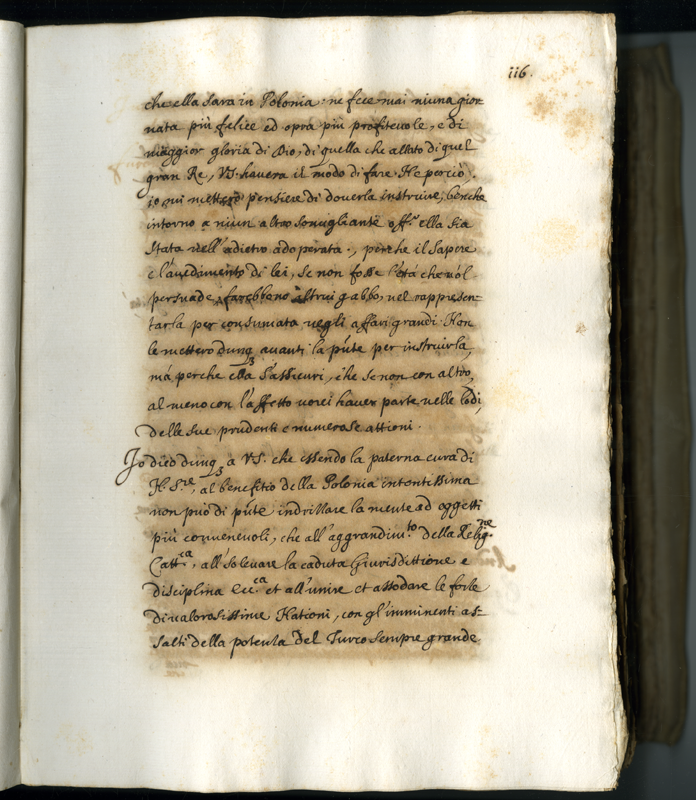 116.
che ella sara in Polonia: ne fece mai niuna gior-
nata più felice ed opra più profiteuole, e di
maggior gloria di Dio, di quella che allato di quel
gran Re, VS. hauera il modo di fare. Ne perciò,
io mi mettero pensiere di douerla instruire, benche
intorno a niun altro somigliante off.o ella sia
stata nell'adietro adoperata., perche il sapere
e l'auedamento di lei, se non fosse l'età che nol
persuade, farebbeno altrui gabbo, nel rappresen-
tarla per consumata negli affari grandi. Non
le mettero dunq auanti la pñte per instruirla,
má perche ella s'assicuri, che se non con altro,
al meno con l'affetto uorei hauer parte nelle lodi,
delle sue prudenti e numerose attioni.
Io dico dunq a VS. che essendo la paterna cura di
N. S.re, al benefitio della Polonia intentissima
non può di pñte indrillare la mente ad oggetti
più conueneuoli, che all'aggrandim.to della Relig.ne
Catt.ca, all'soleuare la caduta Giurisdittione e
disciplina Ecc.ca et all'unire et assodare le forze
di ualorosissime Nationi, con gl'imminenti as-
salti della potenza del Turco sempre grande